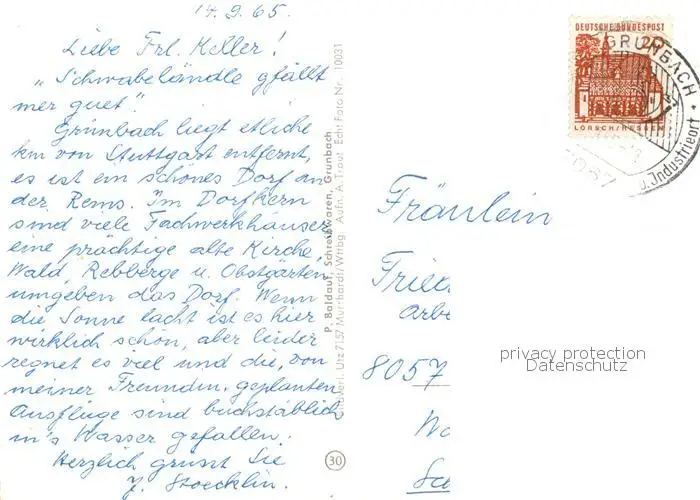 14.9.65.
Liebe Frl. Keller!
„Schwabeländle gfällt
mer guet".
Grünbach liegt etliche
km von Stuttgart entfernt,
es ist ein schönes Dorf an
der Rems. Im Dorfkern
sind viele Fachwerkhäuser
eine prächtige alte Kirche,
Wald, Rebberge u. Obstgärten
umgeben das Dorf. Wenn
die Sonne lacht ist es hier
wirklich schön, aber leider
regnet es viel und die, von
meiner Freundin, geplanten
Ausflüge sind buchstäblich
in's Wasser gefallen.
Herzlich grüsst Sie
J. Stoecklin.
P. Baldauf, Schreibwaren, Grunbach
Utz 7157 Murrhardt/Wttbg Aufn. A. Traut Echt Foto Nr. 10031
30
DEUTSCHE BUNDESPOST
20
LORSCH/HESSEN
GRUNBACH
u. Industrieort
Fräulein
Fried
Arbe
8057
privacy protection
Datenschutz